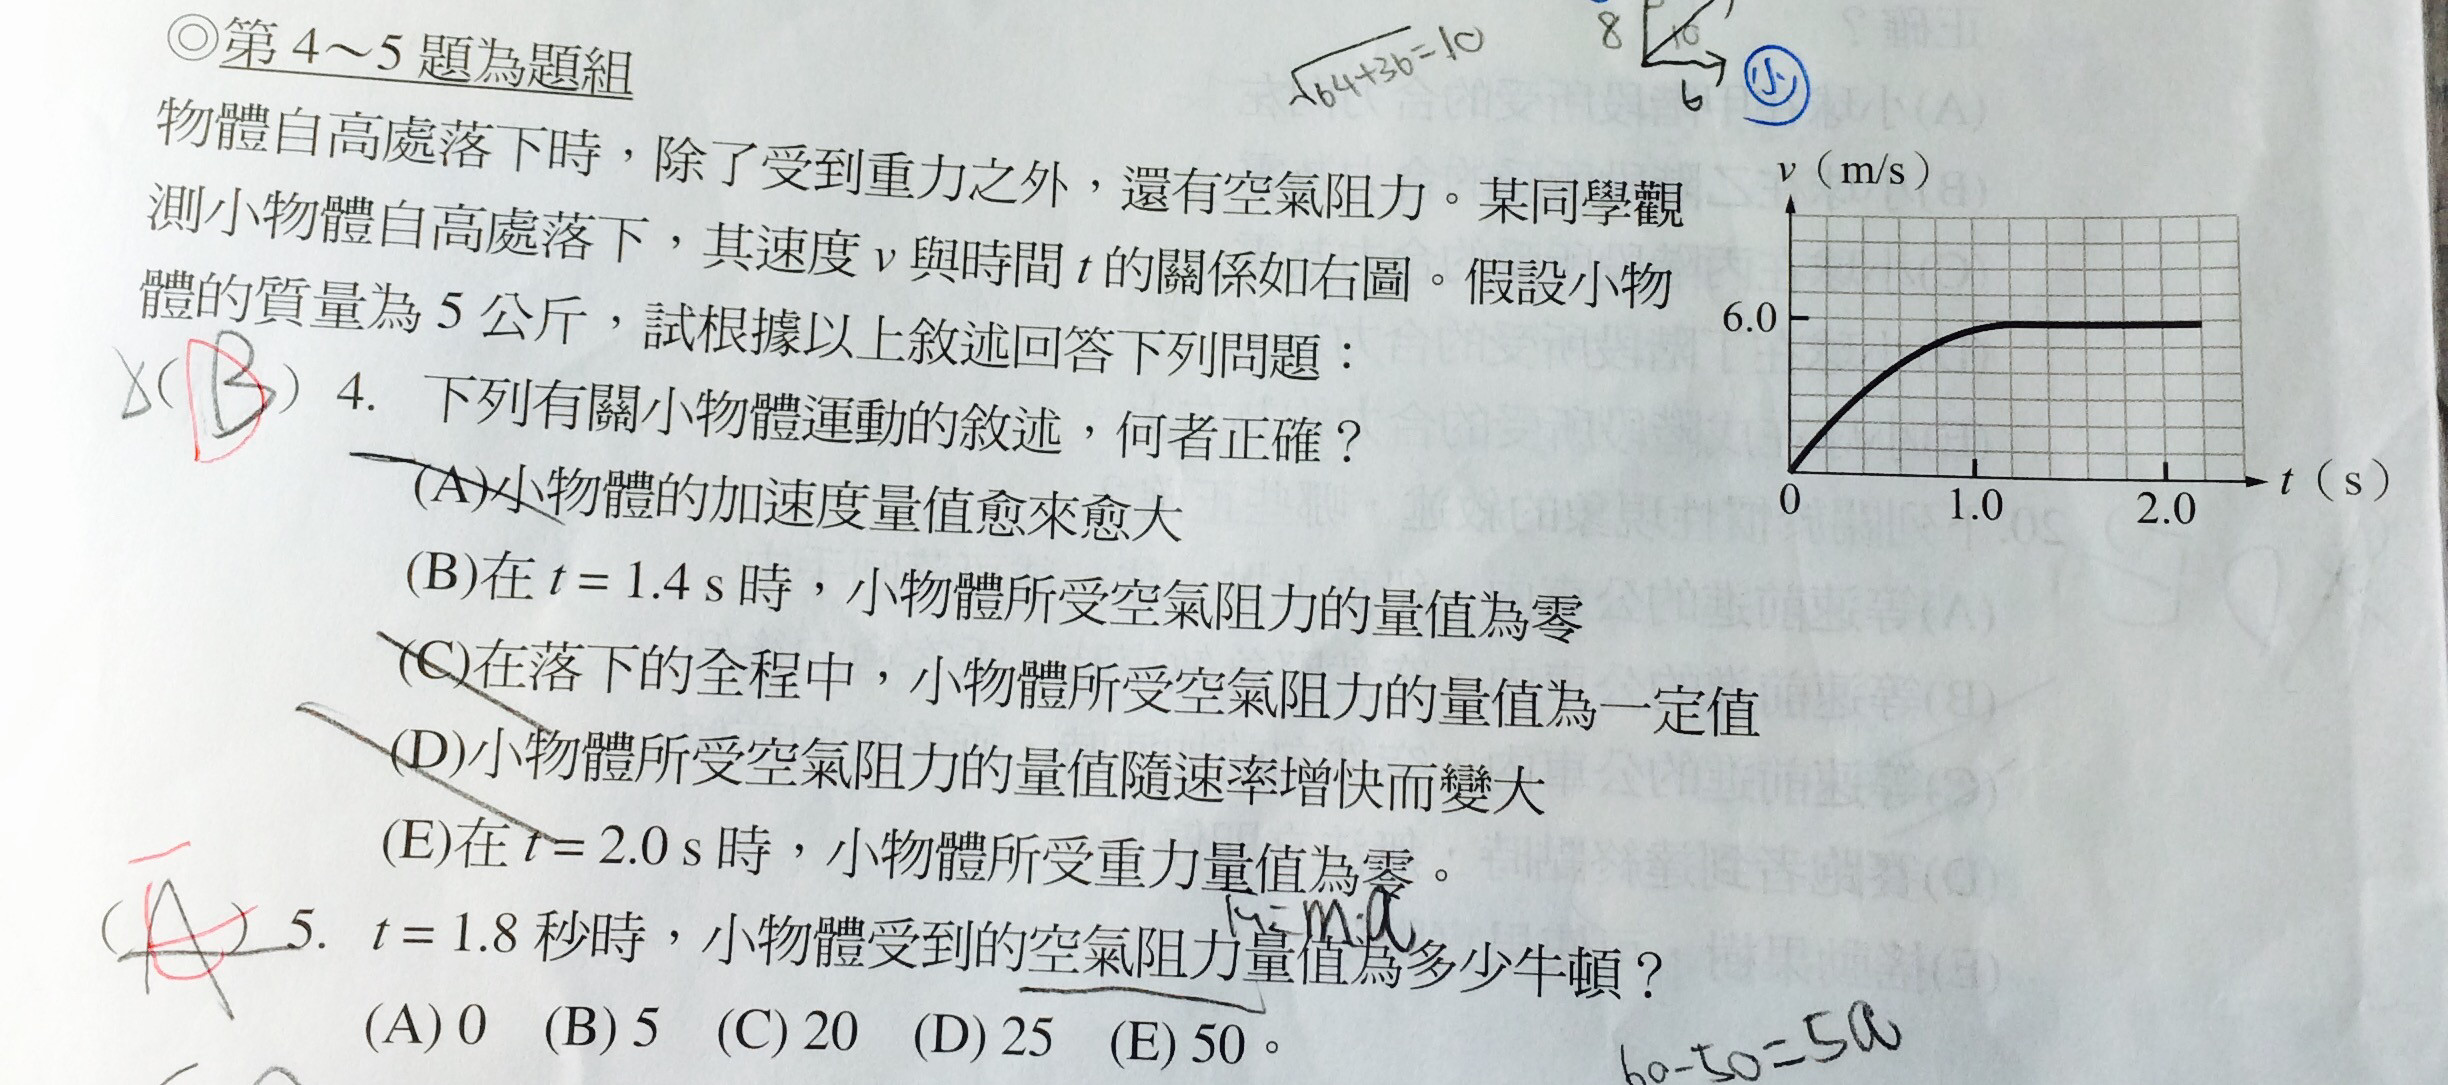 ◎第 4～5 題為題組
√64+36=10
8
10
6
小
物體自高處落下時，除了受到重力之外，還有空氣阻力。某同學觀
測小物體自高處落下，其速度 v 與時間 t 的關係如右圖。假設小物
體的質量為 5 公斤，試根據以上敘述回答下列問題：
v（m/s）
6.0
0
1.0
2.0
t（s）
(B) 4. 下列有關小物體運動的敘述，何者正確？
D
(A)小物體的加速度量值愈來愈大
(B)在 t = 1.4 s 時，小物體所受空氣阻力的量值為零
(C)在落下的全程中，小物體所受空氣阻力的量值為一定值
(D)小物體所受空氣阻力的量值隨速率增快而變大
(E)在 t = 2.0 s 時，小物體所受重力量值為零。
(A) 5. t = 1.8 秒時，小物體受到的空氣阻力量值為多少牛頓？
E
(A) 0 (B) 5 (C) 20 (D) 25 (E) 50。
60-50=5a